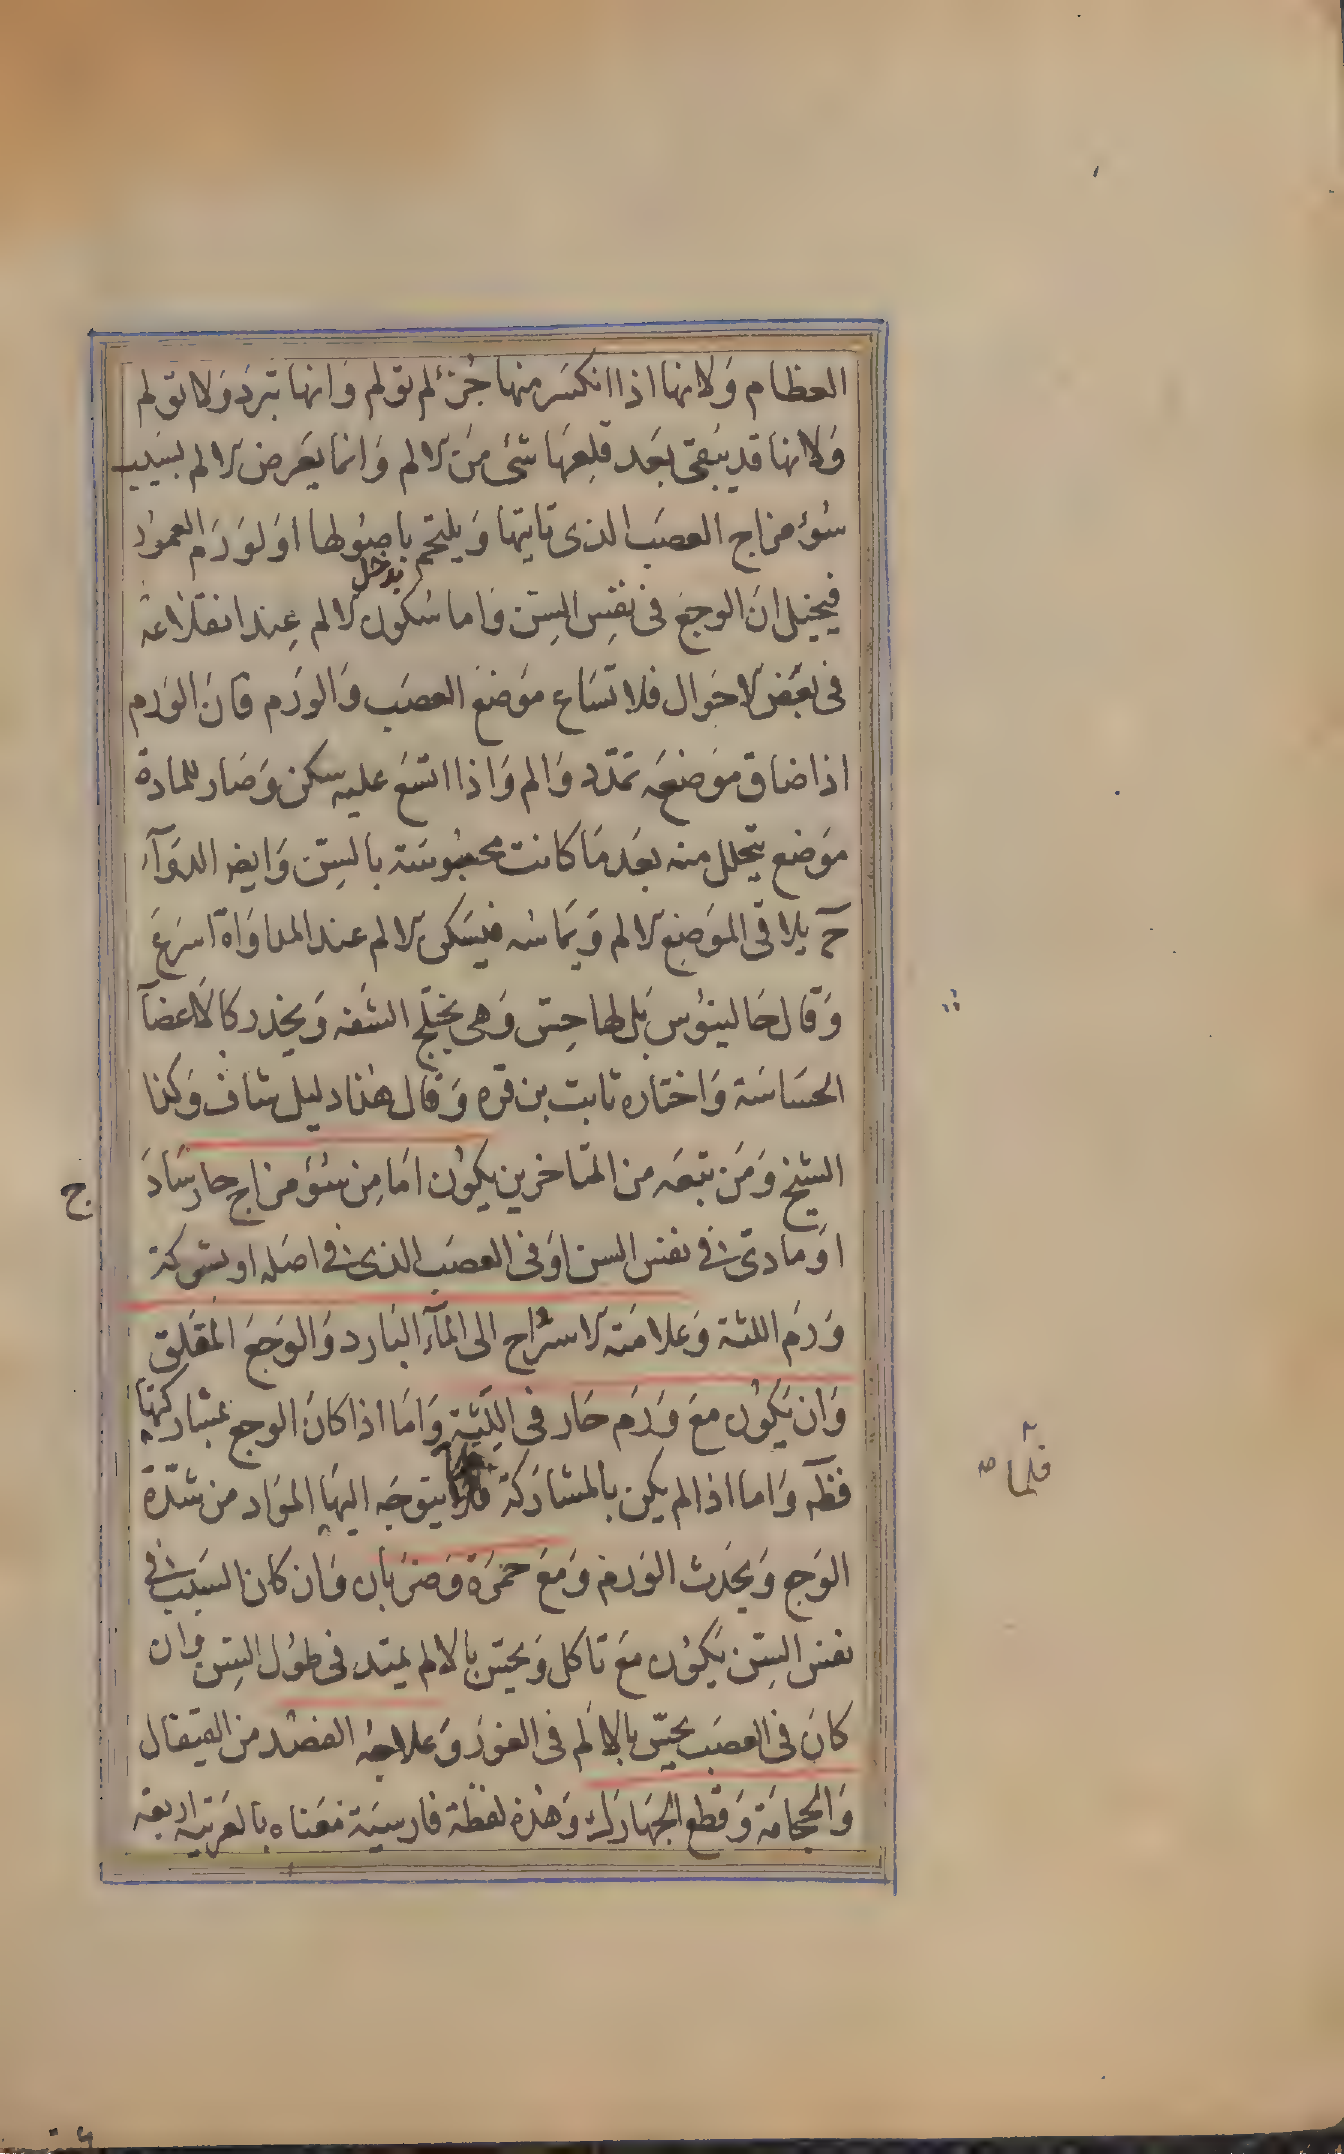 العظام وَلانها اذا انكسَر منها جُزءٌ لم تولم وَانها تبرد وَلا تولم
وَلانها قد يبَقى بعَد قلعهَا شئ مَن الالم وَانما يعَرض الالم بسَبب
سُوء مزاج العصَب الذى تاتيها وَ يلتحم باصُولها او لوَرَم العمود
يدخل
فيخيل انَ الوجعَ فى نفسِ السِنّ وَاما سُكون الالم عِند انقلاعه
فى بعَض الاحوَال فلاتسَاع موَضعَ العصَب وَالورَم فانَ الورَم
اذا ضاق موَضعَه تمَدّد وَالم وَاذا اتسَعَ عليه سكن وَصَار للمادة
موَضع يتحلل منه بعَد مَا كانت محبُوسَة بالسِنّ وَايضا الدوَآء
ح يلاقى الموَضِع الالم وَيمَاسُه فيسَكن الالم عند المداوَاة اسرَعَ
وَقال جَالينوُس بَل لها حِسّ وَهى يختلج الشفه وَيخدر كالاعضآ
الحسَاسَة وَاختاره ثابت بن قره وَقال هٰذا دليل شاف وَكذا
الشيخ وَمَن تبعَه من المتاخرين يكوُن امَا مِن سُوَء مزاج حار سَاذَ
ج
اوَ مادىّ فى نفس السن اوَ فى العصَب الذى فى اصَله او بشركة
وَرَم اللثة وَعلامَته الاسترَاح الى المآء البَارد وَالوَجعَ المقلق
وَان يَكوُن معَ وَرَم حَار فى اللثة وَامَا اذا كانَ الوجع بمشاركتها
فظٓ وَاما اذا لم يكن بالمشارَكة يتوجَه اليهَا الموَاد من شدّة
فلما صه
الوَجع وَيحَدث الورَم وَمَعَ حمرَة وَضرَبان وَان كان السَبب فى
نفس السِنّ يكوُن مَعَ تاكل وَيحسّ بالالم يمتد فى طوُل السِنّ وان
كانَ فى العصَب يحسّ بالالَم فى الغوَر وَعلاجهُ الفصَد من القيفال
وَالحجامَة وَقطع الجهَارَك وَهٰذه لفظة فارسيَة مَعَناه بالعَربية اربعَه